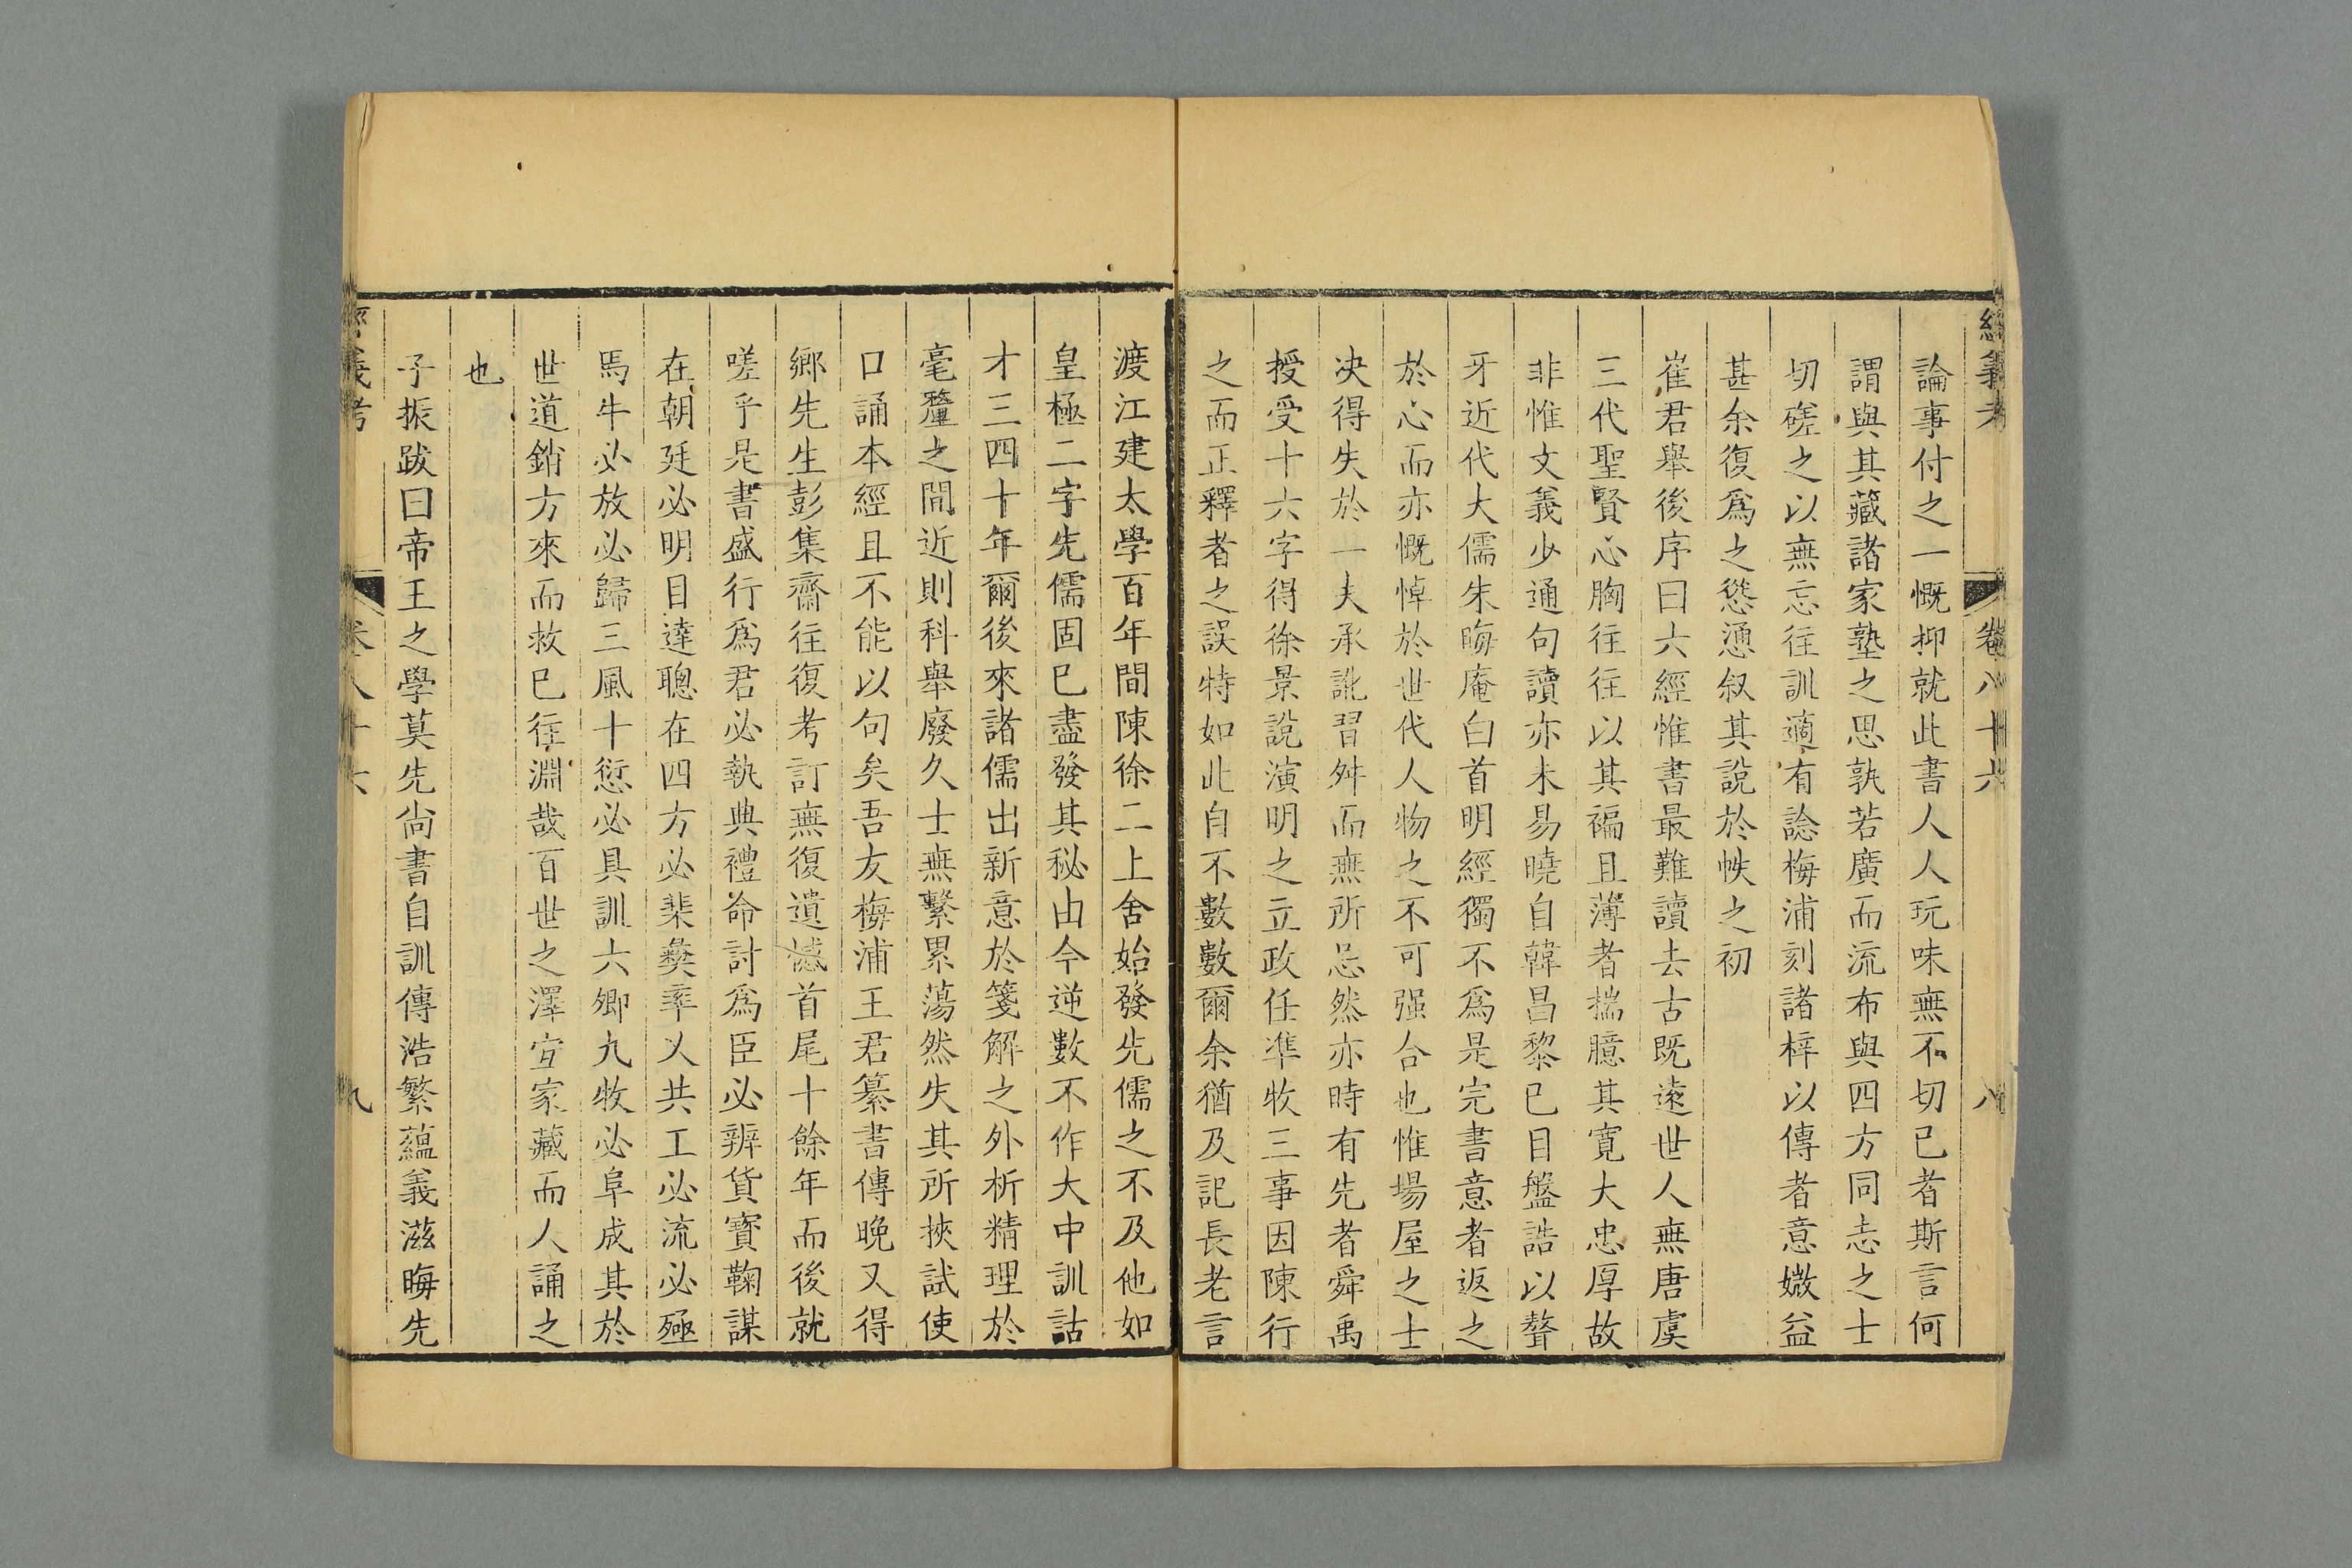 經義考 卷八十六 八
論事付之一慨抑就此書人人玩味無不切已者斯言何
謂與其藏諸家塾之思孰若廣而流布與四方同志之士
切磋之以無忘往訓適有諗梅浦刻諸梓以傳者意媺益
甚余復爲之慫慂叙其說於帙之初
崔君舉後序曰六經惟書最難讀去古既遠世人無唐虞
三代聖賢心胸往往以其褊且薄者揣臆其寬大忠厚故
非惟文義少通句讀亦未易曉自韓昌黎已目盤誥以聱
牙近代大儒朱晦庵白首明經獨不爲是完書意者返之
於心而亦慨悼於世代人物之不可强合也惟場屋之士
决得失於一夫承訛習舛而無所忌然亦時有先者舜禹
授受十六字得徐景說演明之立政任準牧三事因陳行
之而正釋者之誤特如此自不數數爾余猶及記長老言
渡江建太學百年間陳徐二上舍始發先儒之不及他如
皇極二字先儒固已盡發其秘由今逆數不作大中訓詁
才三四十年爾後來諸儒出新意於箋解之外析精理於
毫釐之間近則科舉廢久士無繫累蕩然失其所挾試使
口誦本經且不能以句矣吾友梅浦王君纂書傳晚又得
鄉先生彭集齋往復考訂無復遺憾首尾十餘年而後就
嗟乎是書盛行爲君必執典禮命討爲臣必辨貨寶鞠謀
在朝廷必明目達聰在四方必棐彝率乂共工必流必殛
馬牛必放必歸三風十愆必具訓六卿九牧必阜成其於
世道銷方來而救已往淵哉百世之澤宜家藏而人誦之
也
子振跋曰帝王之學莫先尙書自訓傳浩繁蘊義滋晦先
經義考 卷八十六 九